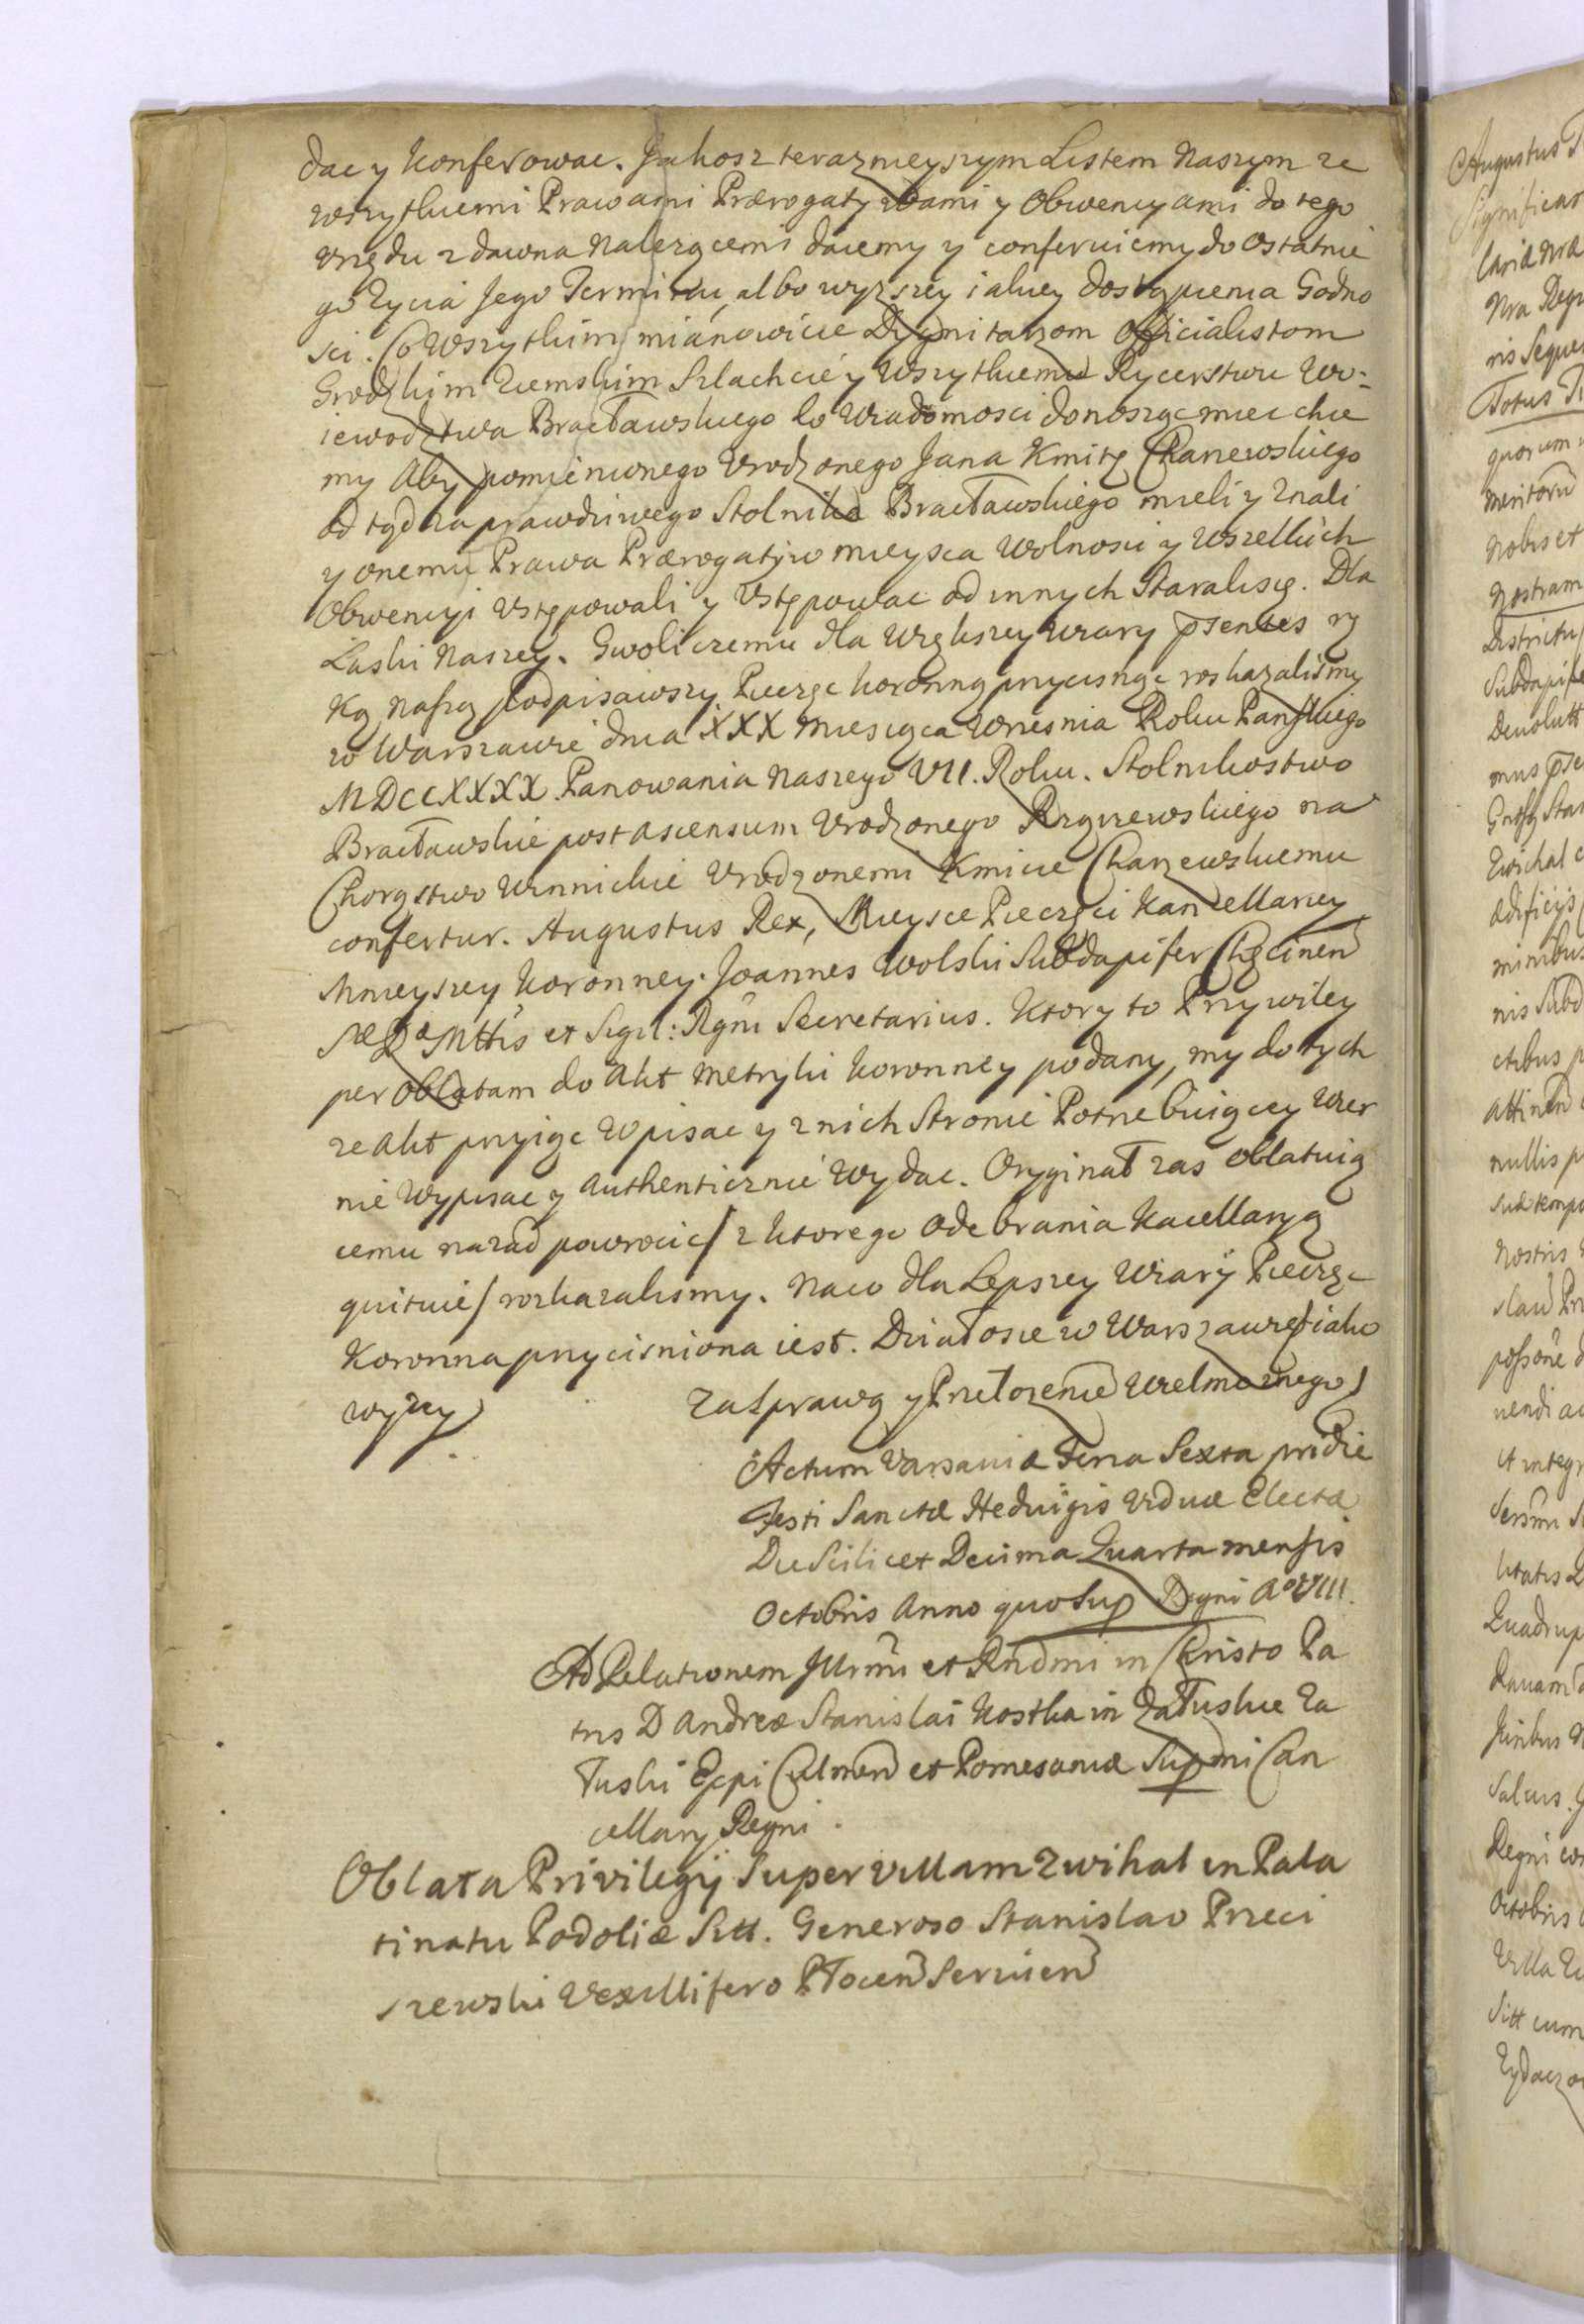 dac y konferowac. Jakosz terazneyszym Listem Naszym ze
wszytkiemi Prawami Prærogatywami y Obwencyami do tego
Vrzędu zdawna Nalezącemi daiemy y conferuiemy do Ostatnie
go Zycia Jego Terminu, albo wyzszey iakiey dostąpienia Godno
sci. Co Wszytkim, mianowicie Dygnitarzom Officialistom
Grodzkim Ziemskim Szlachcie y Wszytkiemu Rycerstwu Wo:
iewodztwa Bracławskiego do Wiadomosci donosząc miec chce
my Aby pomienionego Vrodzonego Jana Kmitę Charzewskiego
od tąd za prawdziwego Stolnika Bracławskiego mieli y Znali
y onemu Prawa Prærogatyw mieysca Wolnosci y Wszelkich
Obwencyi Vstępowali y Vstępowac od innych Starali się. Dla
Laski Naszey. Gwoli czemu dla Większey wiary psentes rę
ką Naszą podpisawszy Pieczęc koronną przycisnąc roskazalismy
w Warszawie dnia XXX Miesiąca Wrzesnia Roku Panskiego
MDCCXXXX. Panowania Naszego VII. Roku. Stolnikostwo
Bracławskie post ascensum Vrodzonego Rzyszewskiego na
Chorąstwo Winnickie Vrodzonemi Kmicie Charzewskiemu
confertur. Augustus Rex, Mieysce Pieczęci Kancellaryey
Mnieyszey koronney. Joannes Wolski Subdapifer Chęcinen
SRMttis et Sigil: Rgni Secretarius. Ktory to Przywiley
per Oblatam do Akt Metryki koronney podany, my do tych
ze Akt przyiąc Wpisac y z nich Stronie Potrzebuiącey Wier
nie Wypisac y authenticznie Wydac. Oryginał zas oblatuią
cemu nazad powrocic / z ktorego odebrania kacellaryą
quituie / rozkazalismy. Naco dla Lepszey Wiary Pieczęc
Koronna przycisniona iest. Działo się w Warszawie / iako
wyzey /
Za sprawą y Przełozeniē Wielmoznego /
Actum Varsaviæ Feria Sexta pridie
Festi Sanctæ Hedvigis Viduæ Electæ
Die Scilicet Decima Quarta mensis
Octobris Anno quo Sup Regni Aº VIII.
Ad Relationem Jllrmi et Rndmi in Christo Pa
tris D Andreæ Stanislai Kostka in Załuskie Za
łuski Eppi Culmen et Pomesaniæ Supmi Can
cellarÿ Regni.
Oblata Privilegÿ Super Villam Zwihal in Pala
tinatu Podoliæ Sitt. Generoso Stanislao Przeci
szewski Vexillifero Płocen Servien